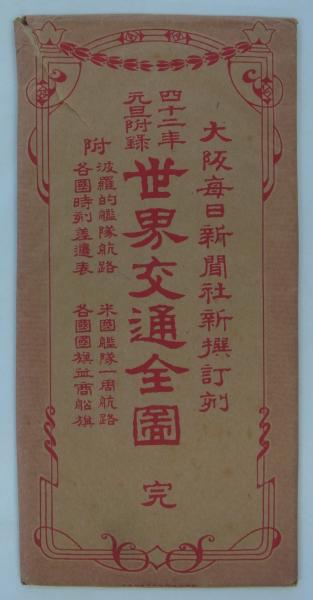 大阪每日新聞社新撰訂刻
四十二年
元旦附錄
世界交通全圖 完
附
波羅的艦隊航路
各國時刻差違表
米國艦隊一周航路
各國國旗並商船旗